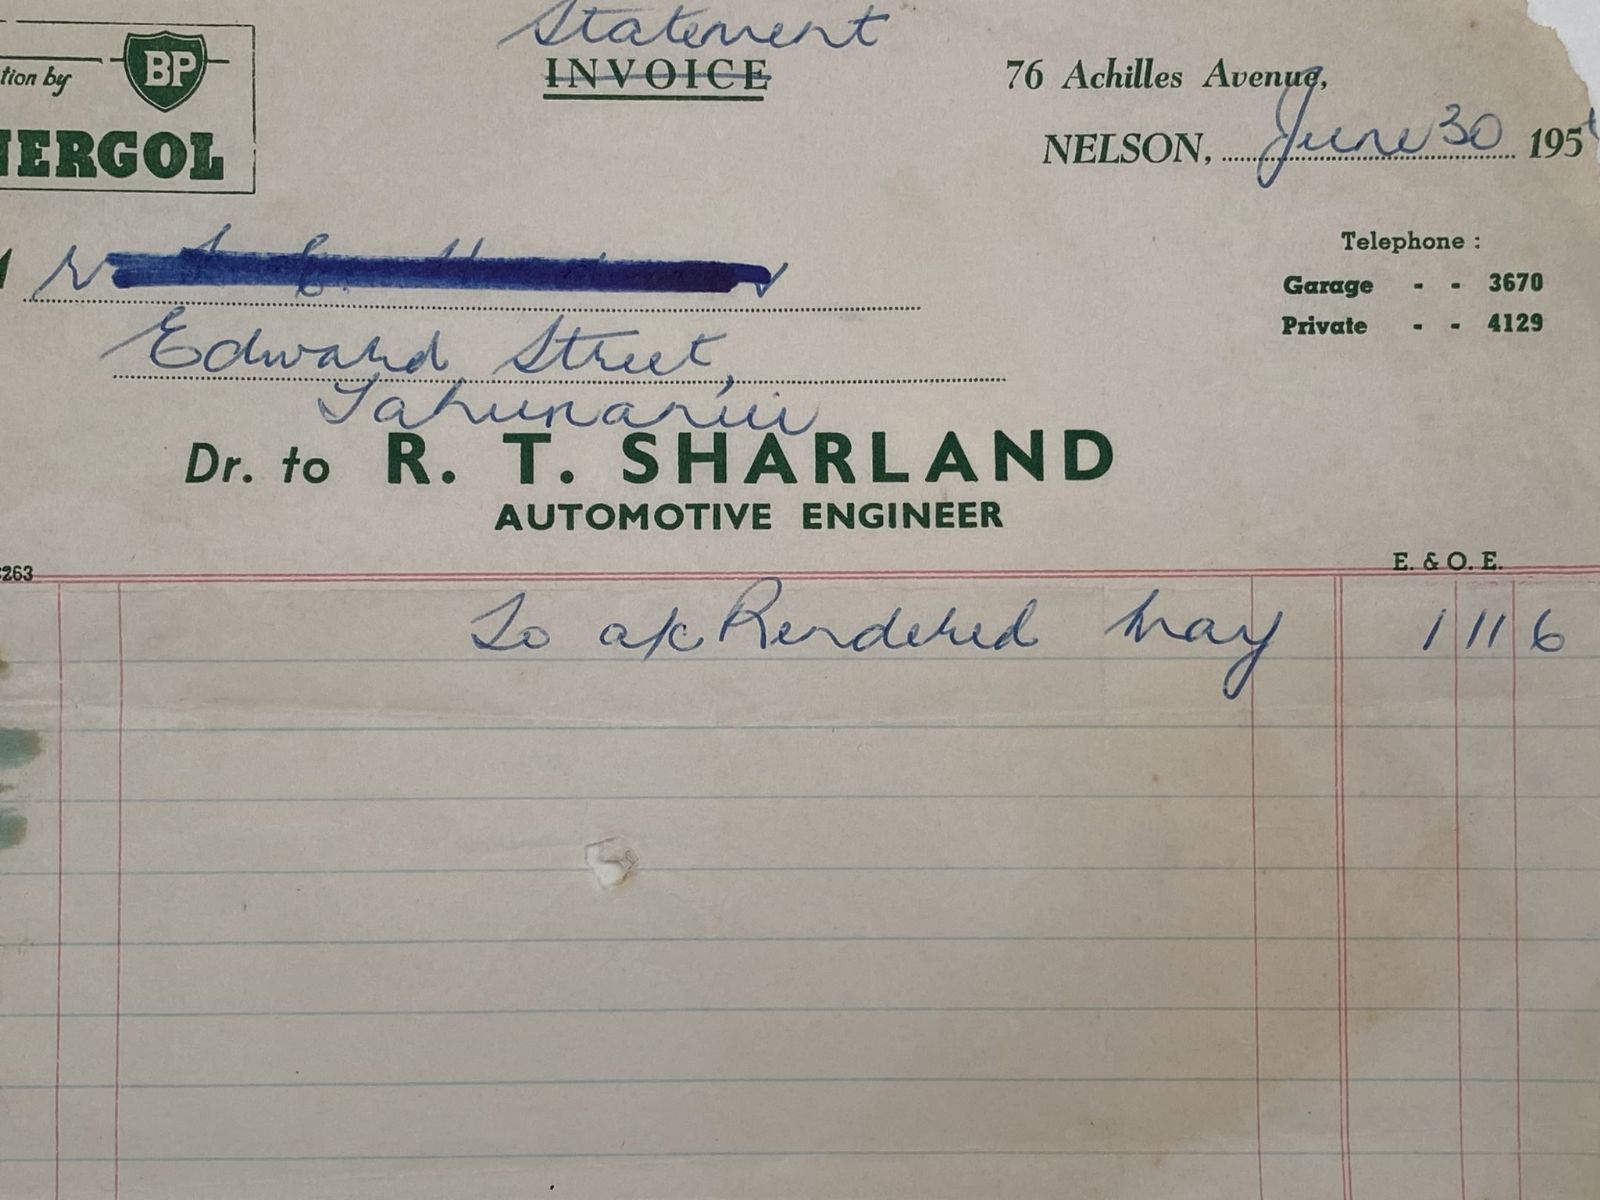 Statement
tion by BP
INVOICE
76 Achilles Avenue,
NERGOL
NELSON, June 30 195
Telephone :
Garage - - 3670
Private - - 4129
Edward Street,
Tahunanui
Dr. to R. T. SHARLAND
AUTOMOTIVE ENGINEER
263
E. & O. E.
To a/c Rendered May 1 11 6